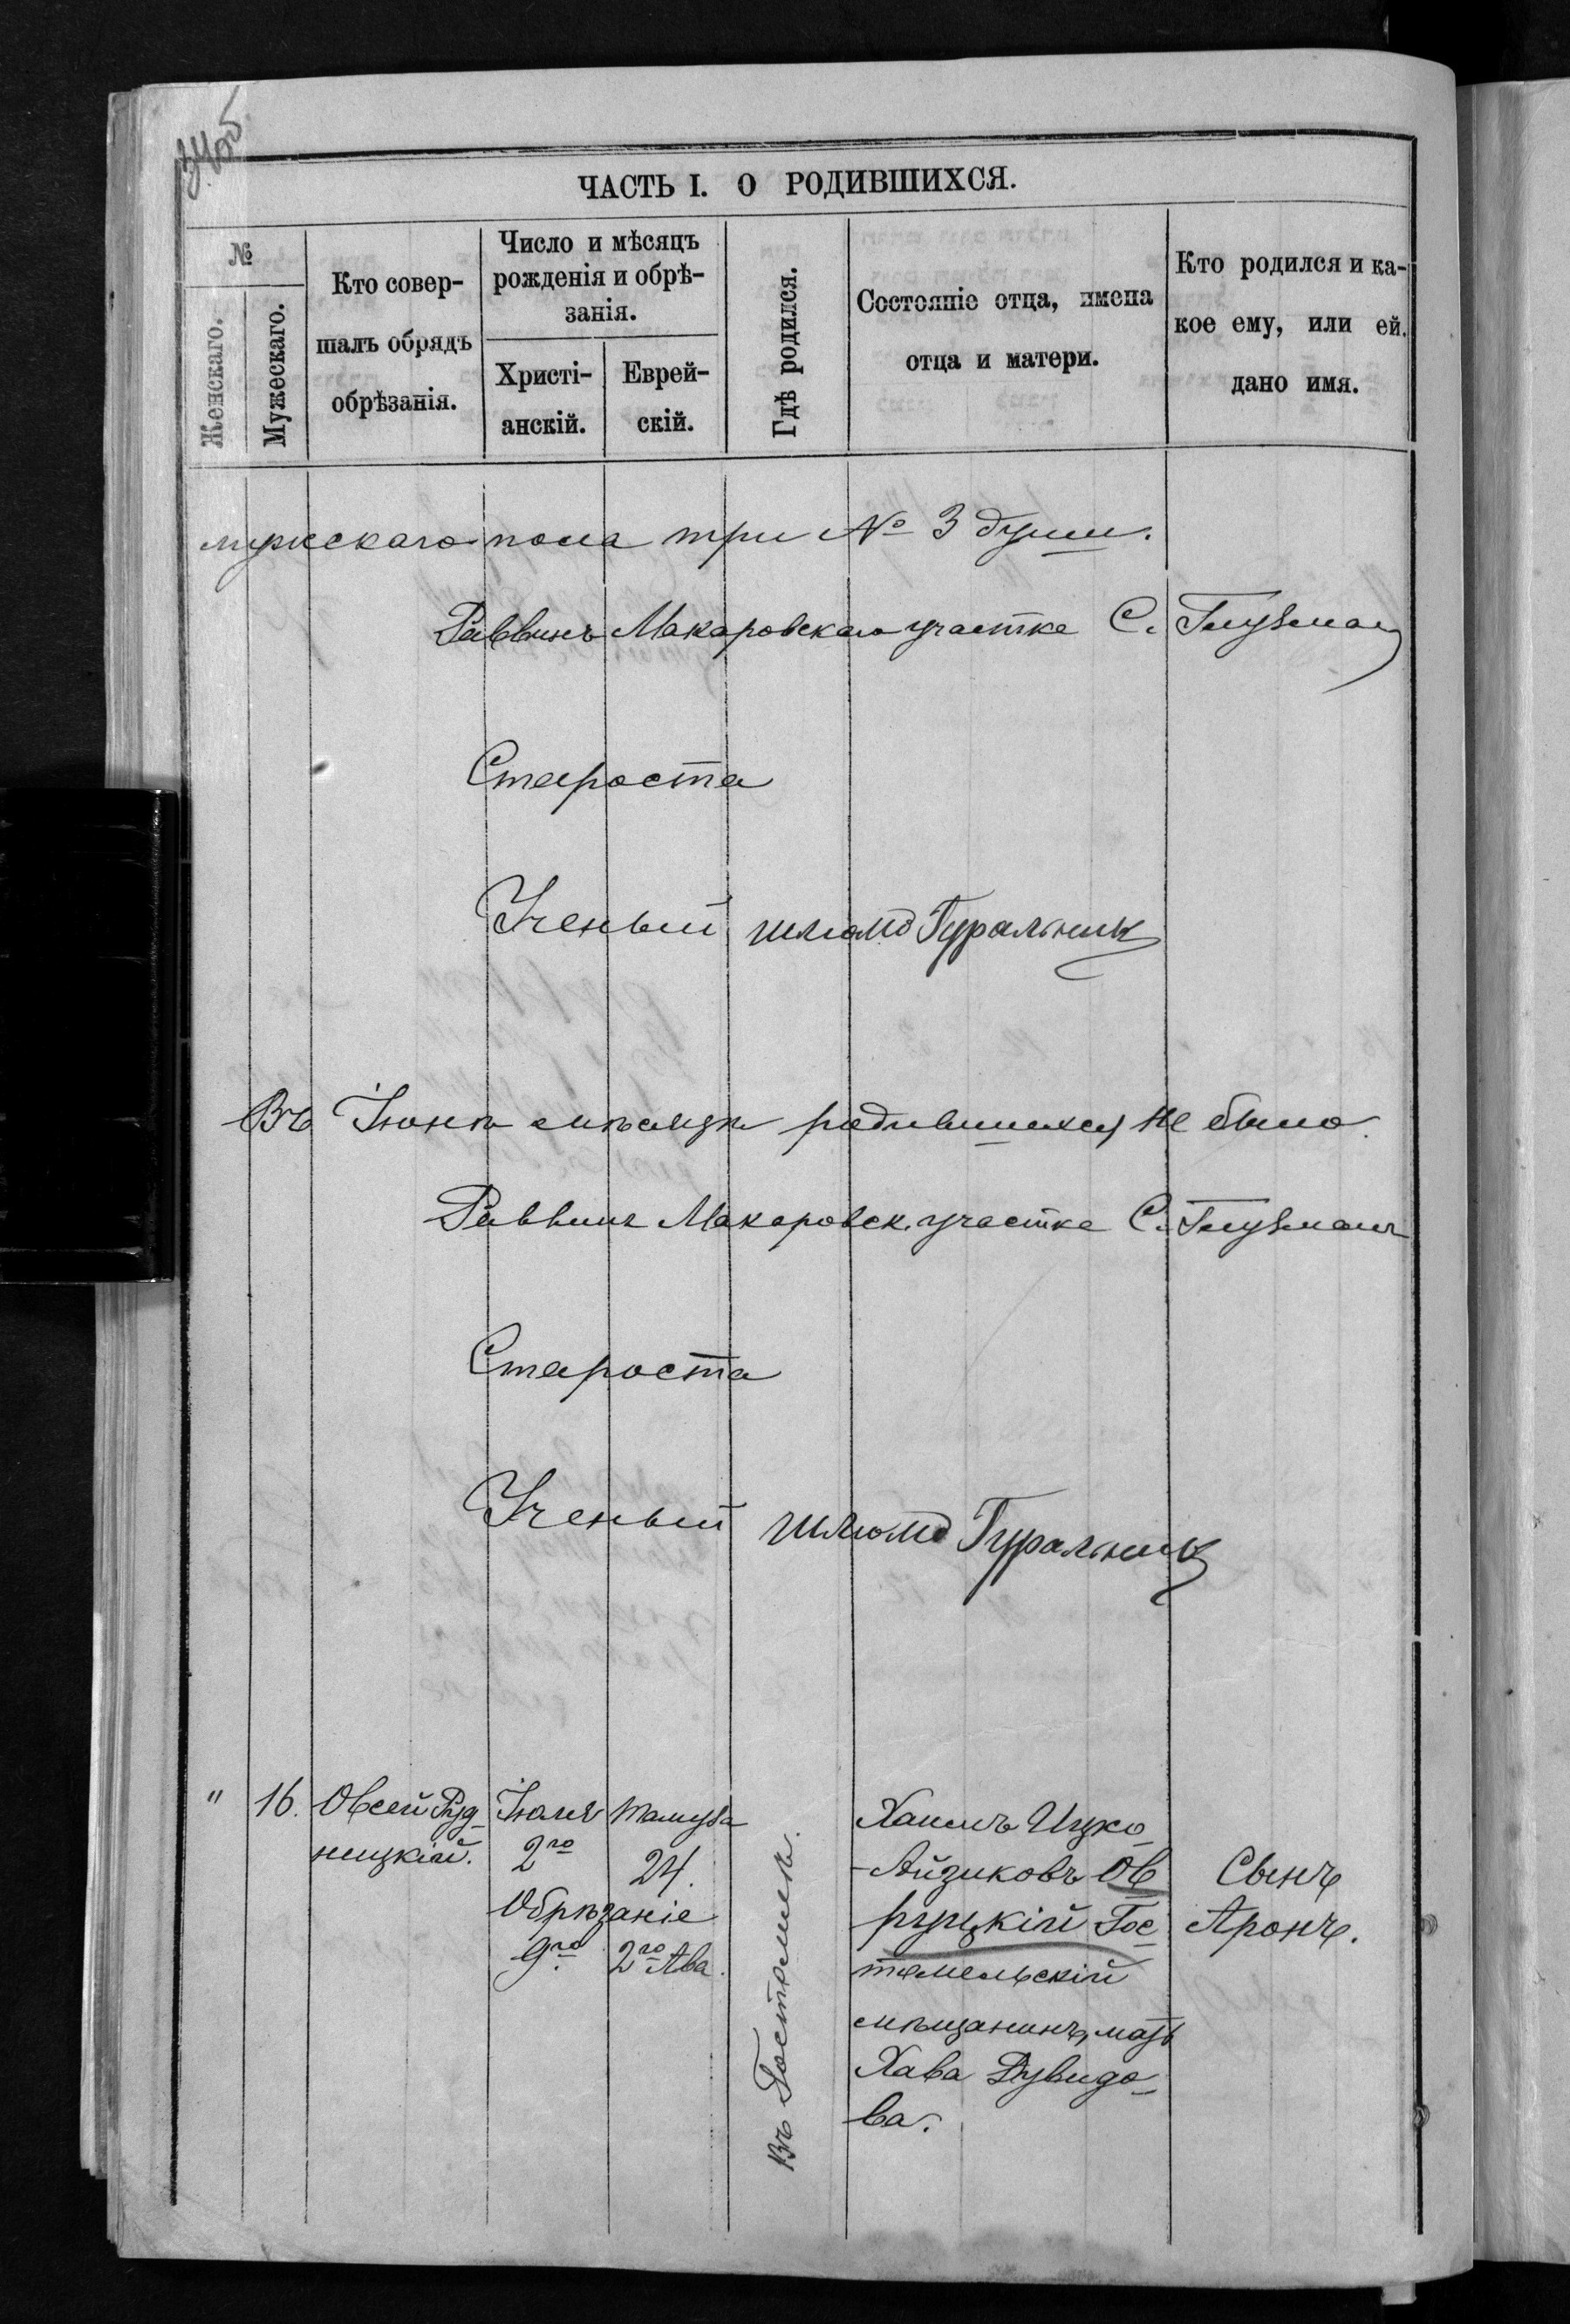 ЧАСТЬ I. О РОДИВШИХСЯ.
№
Женскаго.
Мужескаго.
Кто совер-
шалъ обрядъ
обрѣзанія.
Число и мѣсяцъ
рожденія и обрѣ-
занія.
Христі-
анскій.
Еврей-
скій.
Гдѣ родился.
Состояніе отца, имена
отца и матери.
Кто родился и ка-
кое ему, или ей.
дано имя.
мужскаго пола три № 3 души.
Раввинъ Макаровскаго участка С. Глузман
Староста
Ученый шлюмо Гуральник
Въ Іюнѣ мѣсяцѣ родившихся не было.
Раввинъ Макаровск. участка С. Глузманъ
Староста
Ученый шлюмо Гуральник
" 16.
Овсей Руд-
ницкій.
Іюля
2го
Обрѣзаніе
9го.
Тамуза
24.
2го Ава.
Въ Гостомлѣ.
Хаимъ Ицко-
Айзиковъ Ов
руцкій Гос
томельскій
мѣщанинъ, мать
Хава Дувидо-
ва.
Сынъ
Аронъ.